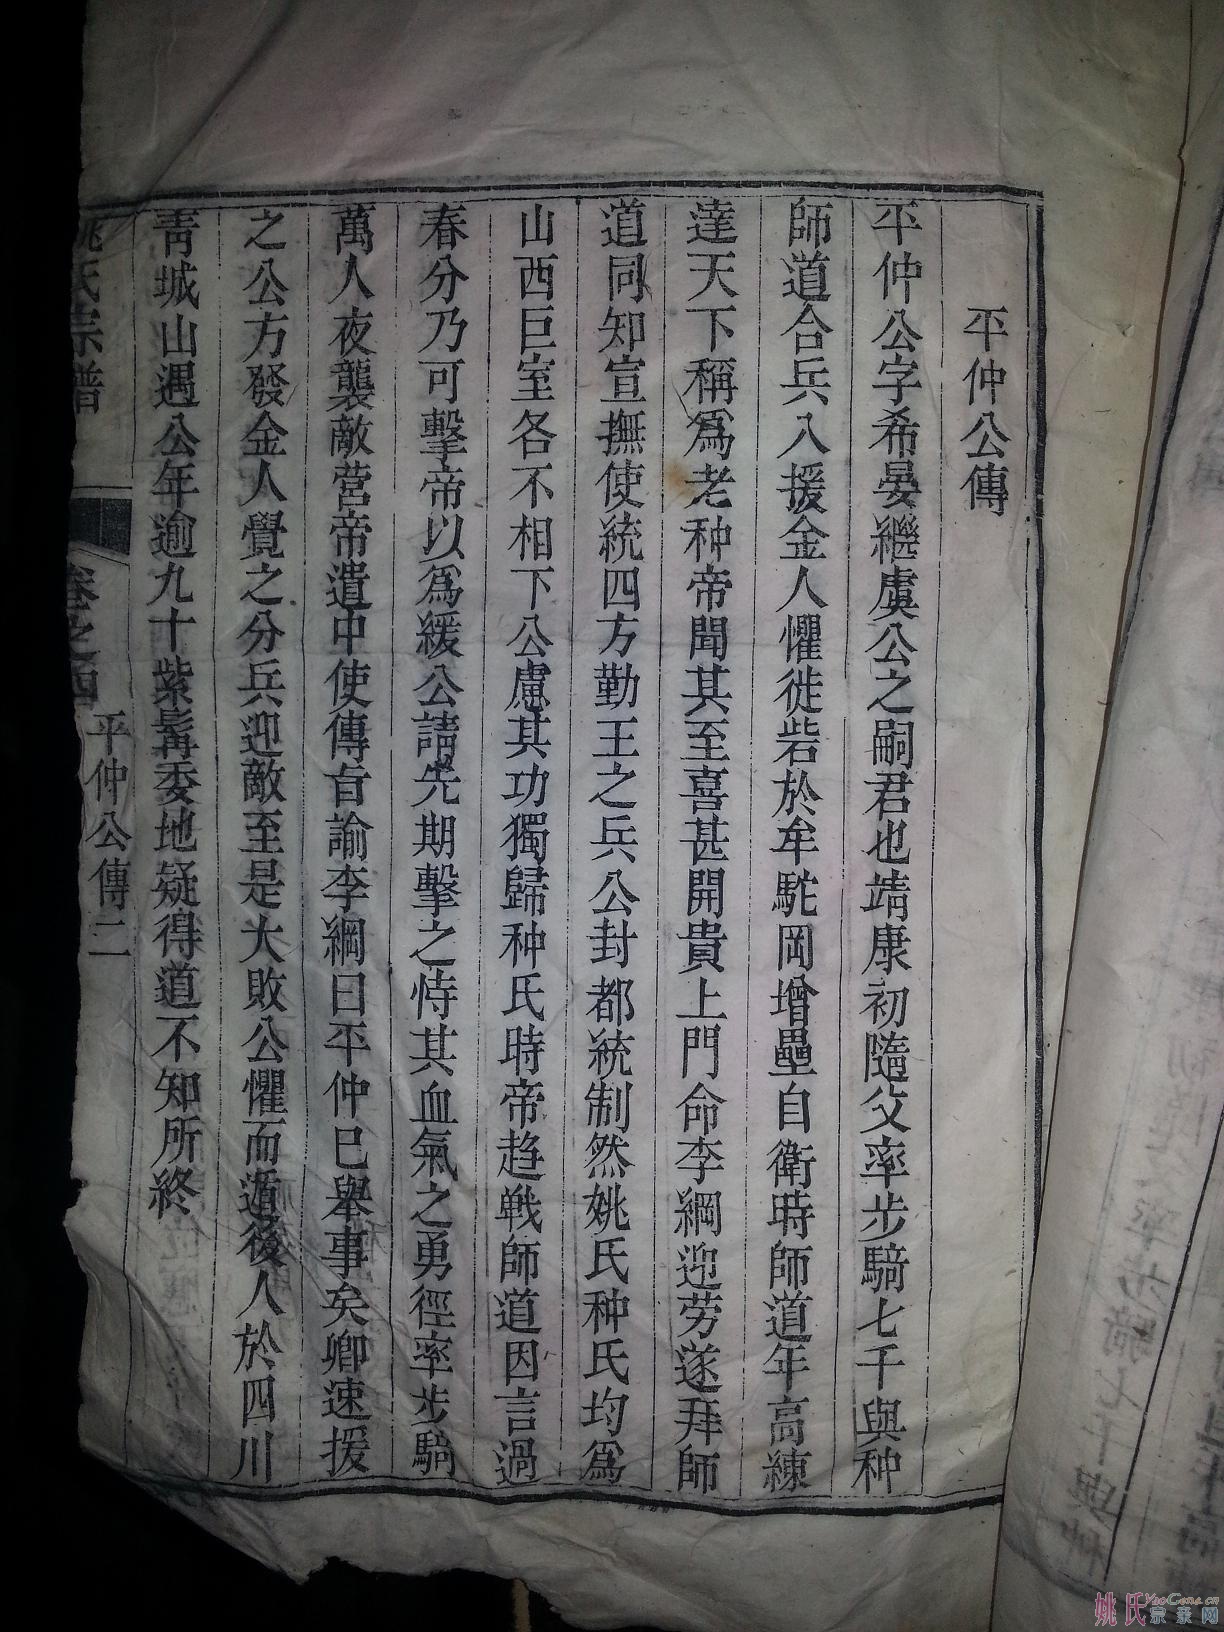 平仲公傳
平仲公字希晏繼虞公之嗣君也靖康初隨父率步騎七千與种
師道合兵入援金人懼徙砦於牟駝岡增壘自衛時師道年高練
達天下稱爲老种帝聞其至喜甚開貴上門命李綱迎劳遂拜師
道同知宣撫使統四方勤王之兵公封都統制然姚氏种氏均爲
山西巨室各不相下公慮其功獨歸种氏時帝趋戰師道因言過
春分乃可擊帝以爲緩公請先期擊之恃其血氣之勇徑率步騎
萬人夜襲敵營帝遣中使傳旨諭李綱曰平仲已舉事矣卿速援
之公方發金人覺之分兵迎敵至是大敗公懼而遁後人於四川
青城山遇公年逾九十紫髯委地疑得道不知所終
姚氏宗譜
卷之四
平仲公傳
二
姚氏 YaoGens.cn
宗亲网